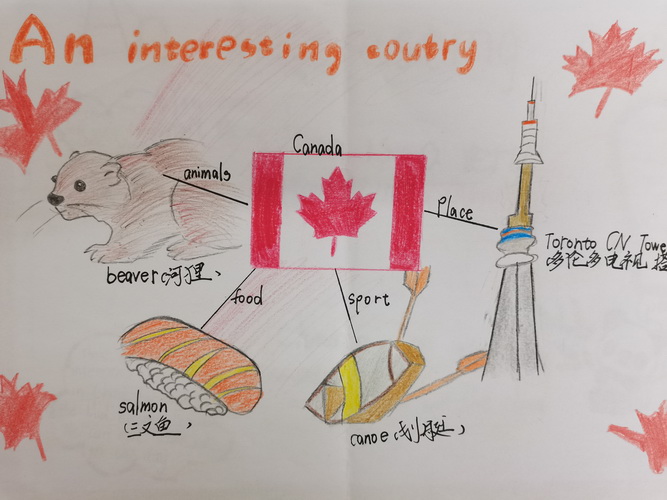 An interesting coutry
Canada
animals
Place
Toronto CN Towe
多伦多电视塔
beaver(河狸)
food
sport
salmon
(三文鱼)
canoe(划艇)